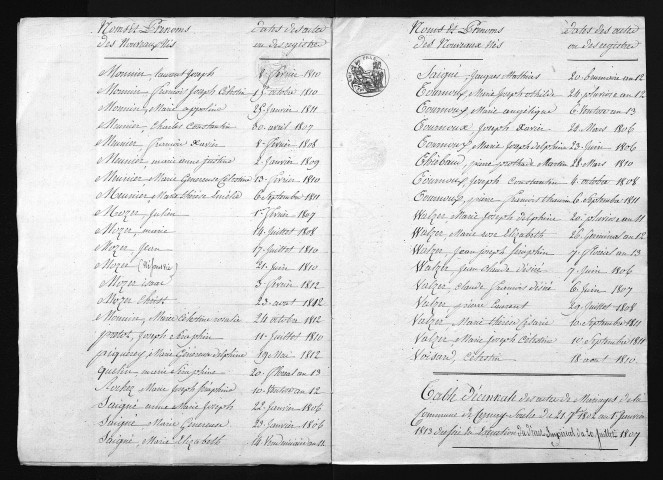 Noms et Prénoms
des Nouveaux Nés
Dates des actes
ou des registres
Monnier, laurent Joseph 8 fevrier 1810
Monnier, francois Joseph Célestin 15 octobre 1810
Monnier, Marie appoline 25 Janvier 1811
Meunier, Charles Constantin 30 avril 1807
Meunier, francois Xavier 8 fevrier 1808
Meunier, marie anne justine 2 Janvier 1809
Meunier, Marie Genereuse Célestine 13 fevrier 1810
Meunier, Marie thérèse 6 Septembre 1811
Mozer, Julien 1er fevrier 1807
Mozer, marie 14 Juillet 1808
Mozer, Jean 17 Juillet 1810
Mozer 21 Juin 1810
Mozer isaac 3 fevrier 1812
Mozer Christ 23 aout 1812
Monnier, Marie Célestine 24 octobre 1812
Joseph Séraphin 11 Juillet 1810
Marie Généreuse delphine 19 Mai 1812
marie Séraphine 20 floreal an 13
Marie Joseph Séraphine 10 Ventose an 12
Saigne Marie Joseph 22 Janvier 1806
Saigne, Marie Genereuse 29 Janvier 1806
Saigne, Marie Elizabeth 14 Vendemiaire an 12
Noms et Prénoms
des Nouveaux Nés
Dates des actes
ou des registres
Saigne, Jacques Mathieu 20 brumaire an 12
Tournoux, Marie Joseph 26 pluviose an 12
Tournoux, Marie angelique 6 Ventose an 13
Tournoux Joseph Xavier 28 Mars 1806
Tournoux, Marie Joseph delphine 23 Juin 1806
Thiebaud, pierre Martin 28 Mars 1810
Tournoux, Joseph Constantin 4 octobre 1808
Tournoux, pierre francois 6 Septembre 1811
Valzer, Marie Joseph delphine 20 pluviose an 11
Valzer, Marie rose Elizabeth 26 Germinal an 12
Valzer, Jean Joseph Séraphin 7 floreal an 13
Valzer Jean Claude désiré 7 Juin 1806
Valzer, Claude francois désiré 6 Juin 1807
Valzer pierre Laurent 29 Juillet 1808
Valzer Marie thérèse Césarie 10 Septembre 1811
Valzer, Marie Joseph Célestine 10 Septembre 1811
Voisard, Célestin 18 aout 1810
Table Décennale des actes de Mariages de la
Commune de du 21 7bre 1802 au 1er Janvier
1813 en exécution du décret Impérial du 20 Juillet 1807